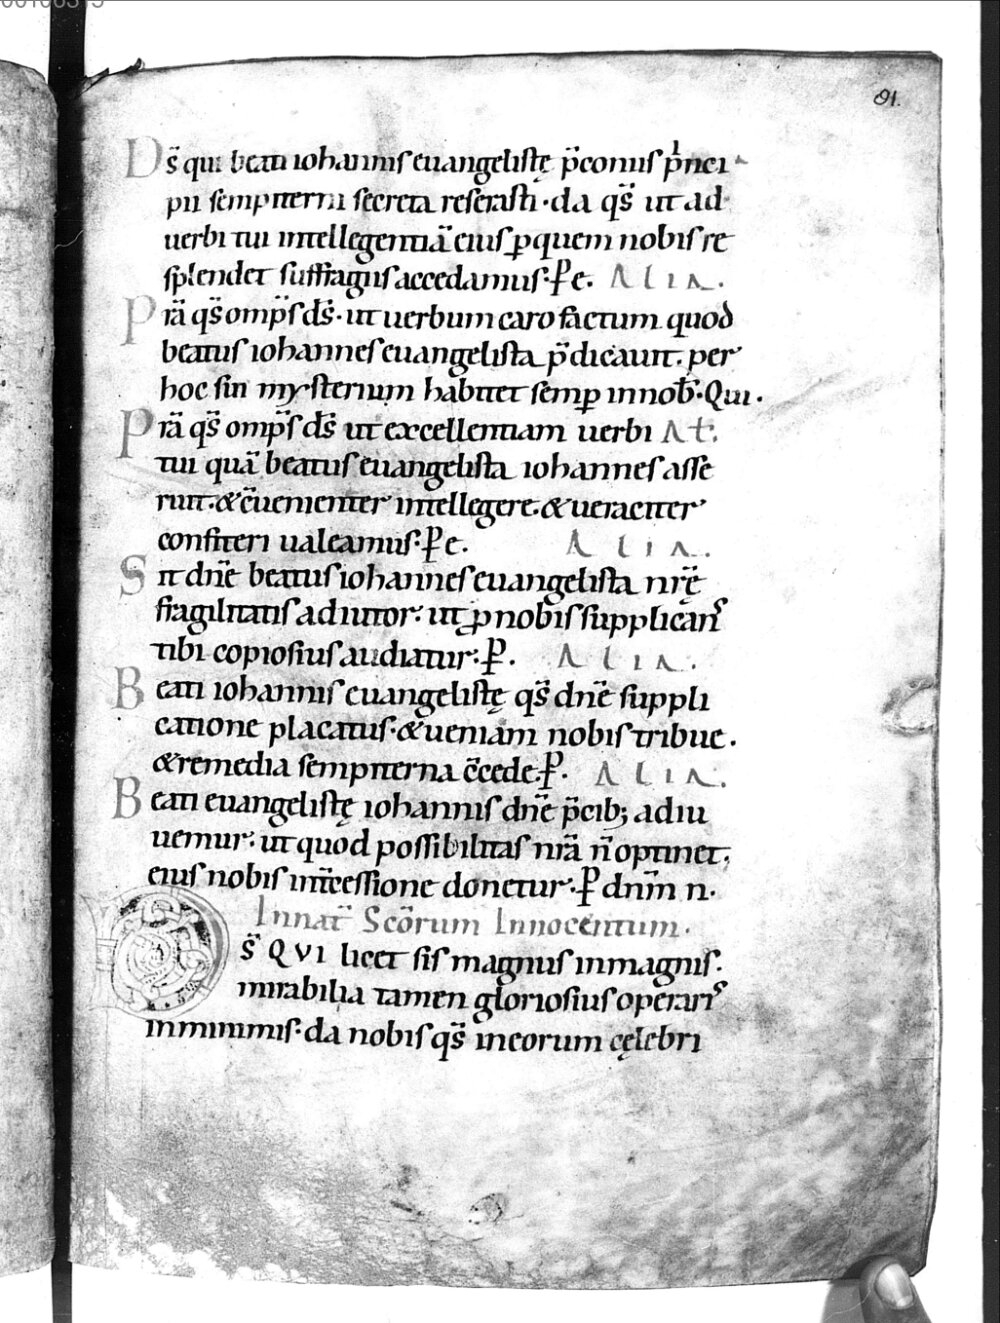 91.
Ds̄ qui beati iohannis euangelistę p̄coniis p̄nci
pii sempiterni secreta reserasti · da qs̄ ut ad
uerbi tui intellegentiā eius ꝑquem nobis re
splendet suffragiis accedamus: ꝑ e. Alia.
Prā qs̄ omps̄ ds̄ · ut uerbum caro factum quod
beatus iohannes euangelista p̄dicauit. per
hoc sin mysterium habitet semꝑ innob̄. Qui.
Prā qs̄ omps̄ ds̄ ut excellentiam uerbi At.
tui quā beatus euangelista iohannes asse
ruit. & c̄uenienter intellegere. & ueraciter
confiteri ualeamus. ꝑ e. Alia.
Sit dn̄e beatus iohannes euangelista nr̄ę
fragilitatis adiutor: ut ꝓ nobis supplicans
tibi copiosius audiatur: ꝑ. Alia.
Beati iohannis euangelistę qs̄ dn̄e suppli
catione placatus · & ueniam nobis tribue.
& remedia sempiterna c̄cede. ꝑ. Alia.
Beati euangelistę iohannis dn̄e p̄cib; adiu
uemur · ut quod possibilitas nr̄a n̄ optinet,
eius nobis int̄cessione donetur. ꝑ dn̄m n.
Innat̄ Scōrum Innocentum.
Ds̄ QVI licet sis magnus inmagnis.
mirabilia tamen gloriosius operaris
inminimis. da nobis qs̄ ineorum cęlebri